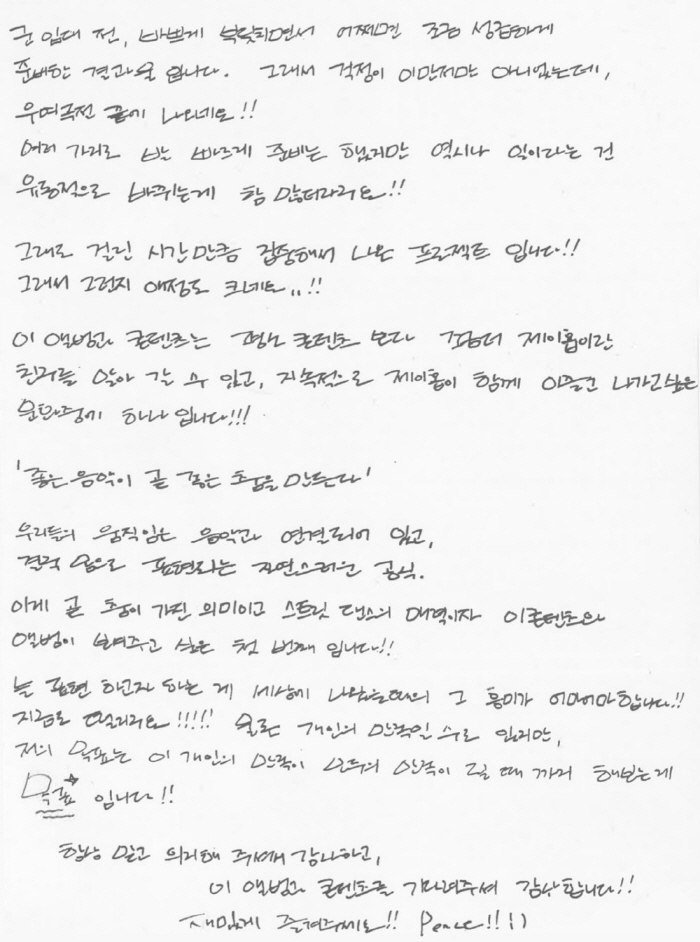 군 입대 전, 바쁘게 부딪히면서 어쩌면 조금 성급하게
준비한 결과물 입니다. 그래서 걱정이 이만저만 아니었는데,
우여곡절 끝에 나오네요!!
여러 가지로 발 빠르게 준비는 했지만 역시나 일이라는 건
유동적으로 바뀌는게 참 많더라구요!!
그래도 걸린 시간만큼 집중해서 나온 프로젝트 입니다!!
그래서 그런지 애정도 크네요..!!
이 앨범과 콘텐츠는 평소 콘텐츠 보다 좀 더 제이홉이란
친구를 알아 갈 수 있고, 지속적으로 제이홉이 함께 이끌고 나가고 싶은
문화중에 하나 입니다!!!
'좋은 음악이 곧 좋은 춤을 만든다'
우리들의 움직임은 음악과 연결되어 있고,
결국 몸으로 표현하는 자연스러운 공식.
이게 곧 춤이 가진 의미이고 스트릿 댄스의 매력이자 이 콘텐츠와
앨범이 보여주고 싶은 첫 번째 입니다!!
늘 표현 하고자 하는 게 세상에 나왔을때의 그 흥미가 어마어마합니다!!
지금도 떨리네요!!!!! 물론 개인의 만족일 수도 있지만,
저의 목표는 이 개인의 만족이 모두의 만족이 될 때 까지 해보는게
목표 입니다!!
항상 믿고 의지해 주셔서 감사하고,
이 앨범과 콘텐츠를 기다려주셔서 감사합니다!!
재밌게 즐겨주세요!! Peace!! :)